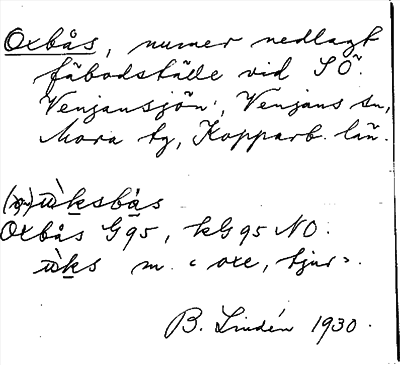 Oxbås, numer nedlagt
fäbodställe vid SÖ.
Venjansjön, Venjans sn,
Mora tg, Kopparb. län.
ùksbås
Oxbås G 95, kG 95 NO.
ùks m. "oxe, tjur".
B. Lindén 1930.